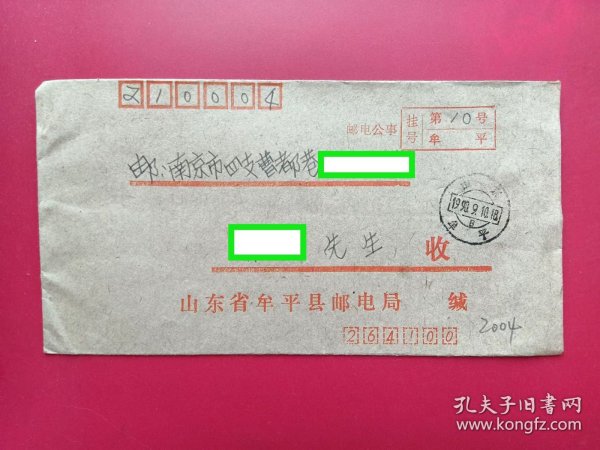 210004
邮电公事
挂号
第10号
牟平
邮:南京市四支曹都巷
先生 收
山东
1990.9.10.18
牟平
山东省牟平县邮电局 缄
264100
2004
孔夫子旧书网
www.kongfz.com